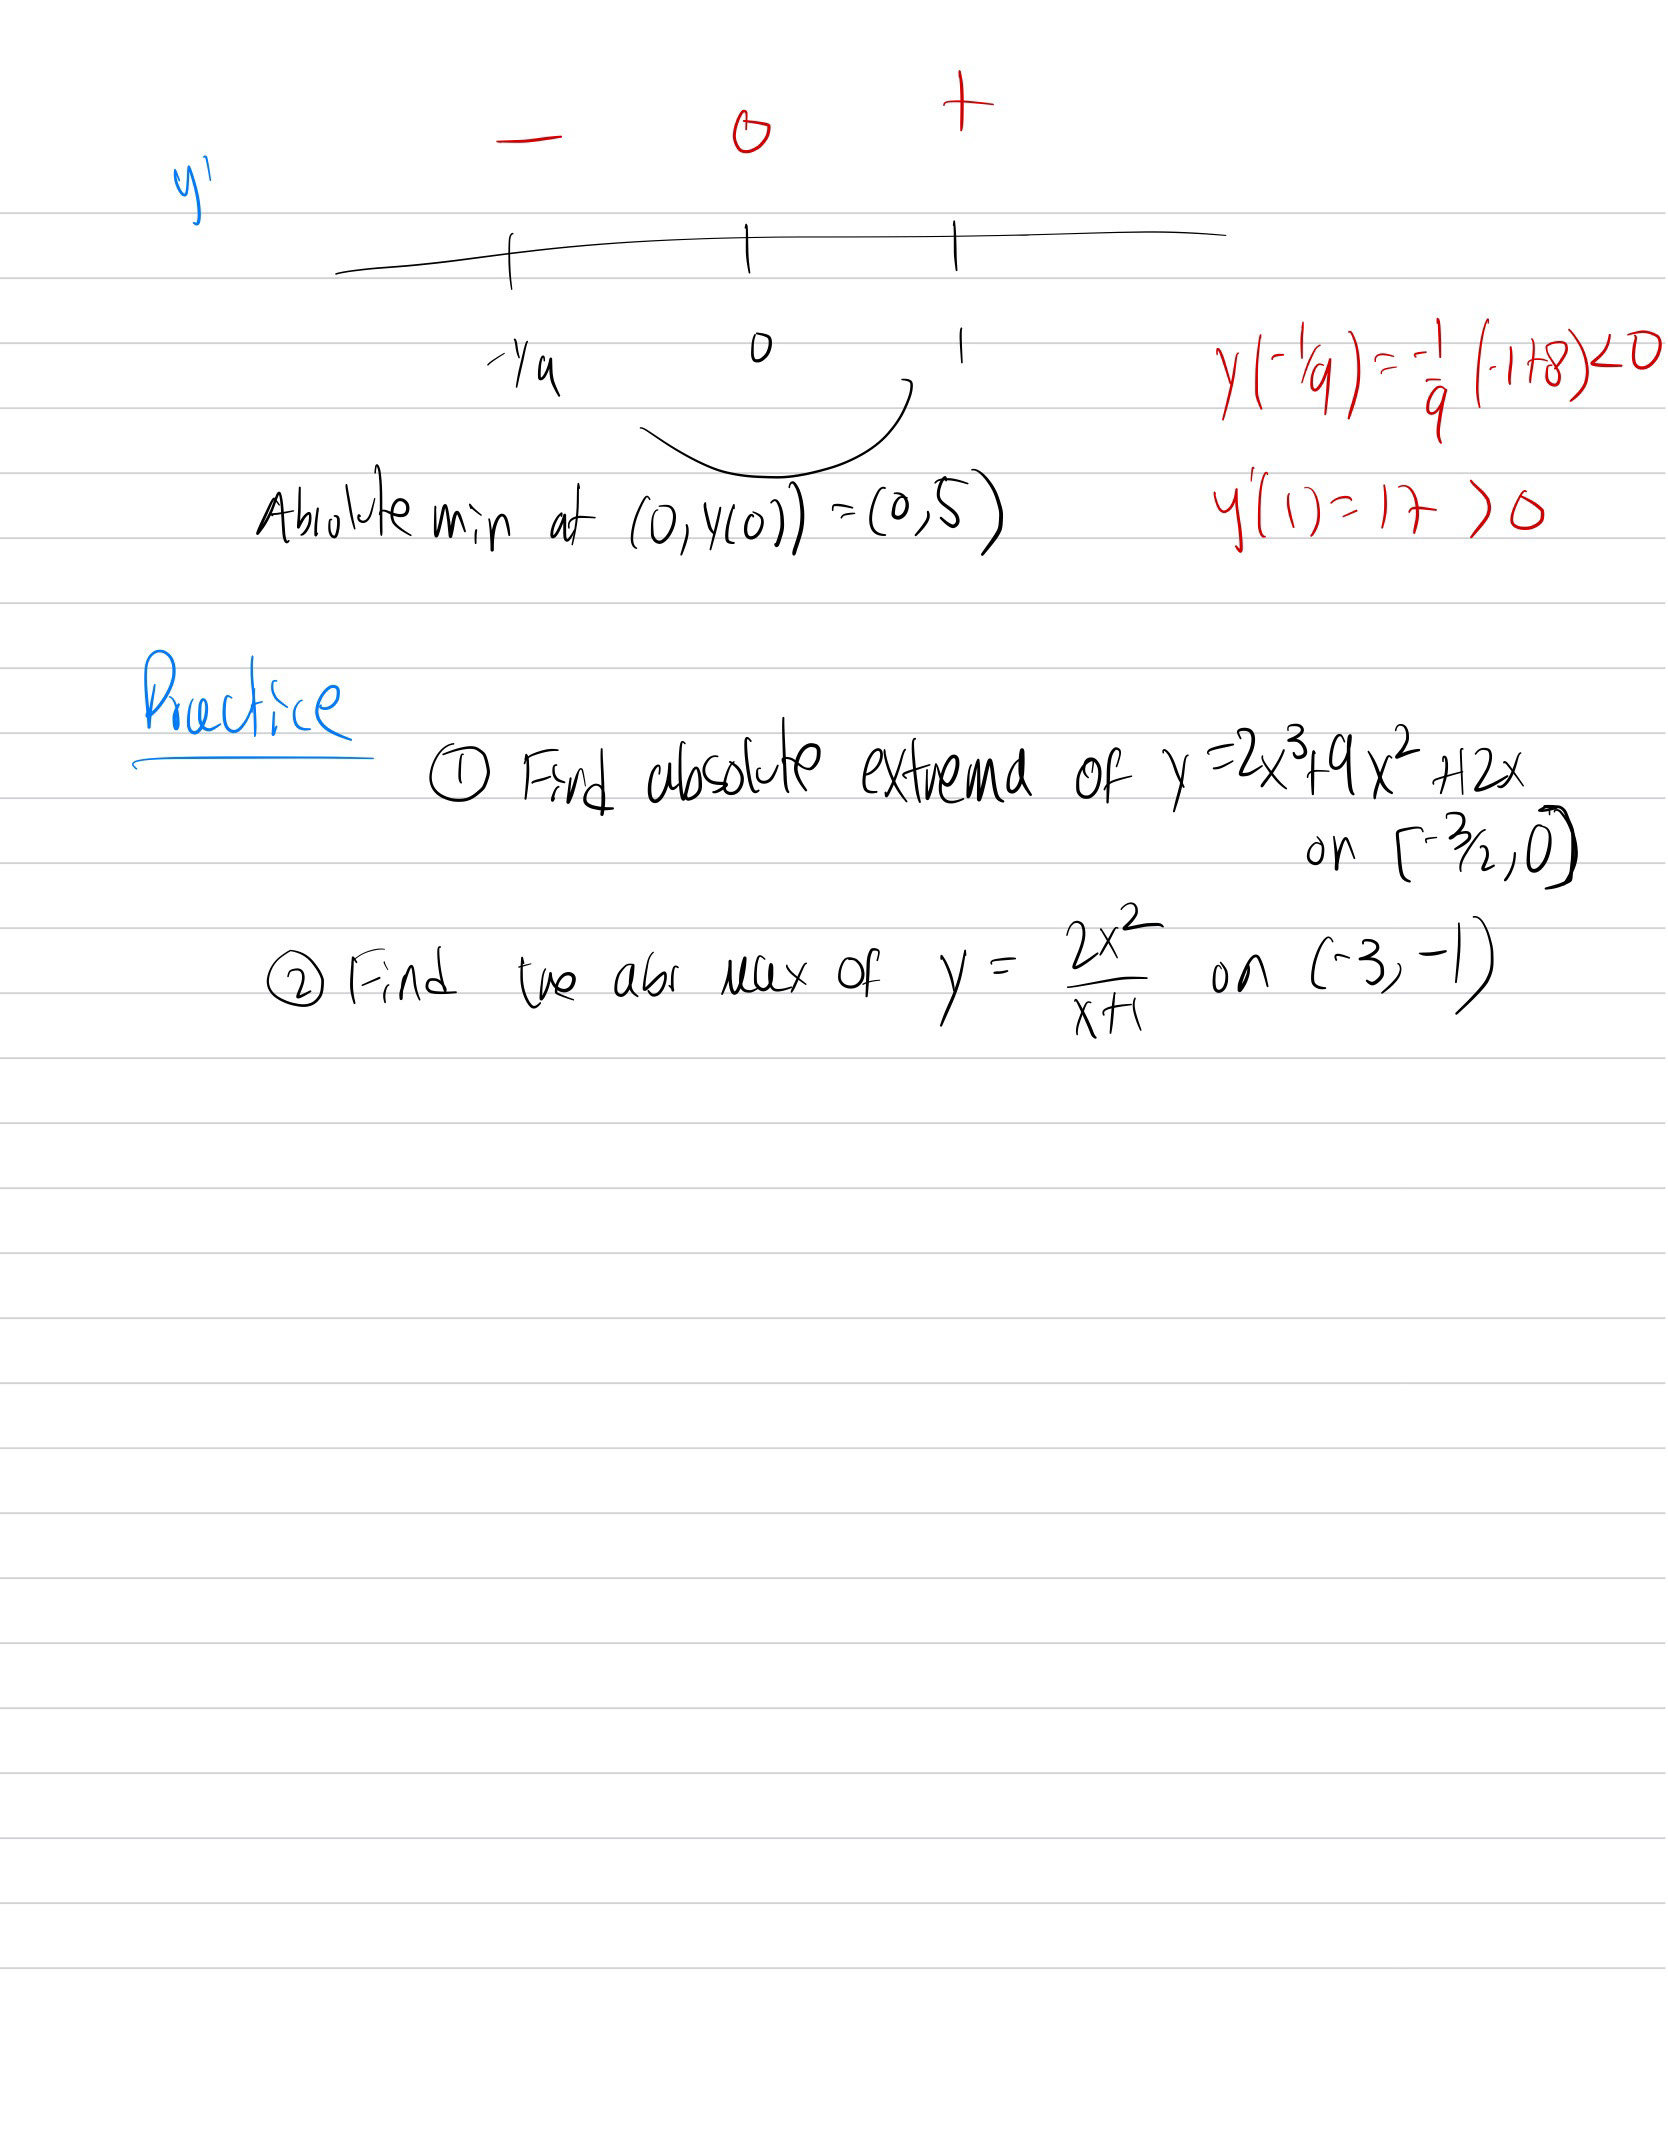 − 0 +
y'
-1/9 0 1
y(-1/9) = -1/9 (-1+8) < 0
Absolute min at (0, y(0)) = (0, 5)
y'(1) = 17 > 0
Practice
① Find absolute extrema of y = 2x³ + 9x² + 12x
on [-3/2, 0]
② Find the abs max of y = 2x²/x+1 on (-3, -1)